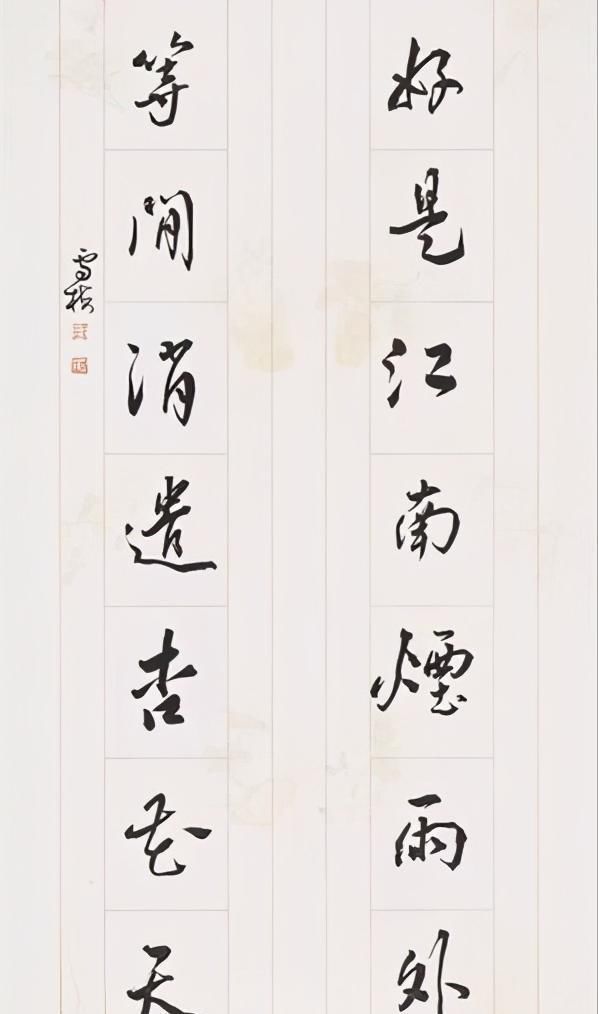 好是江南煙雨外
等閒消遣杏花天
雪梅